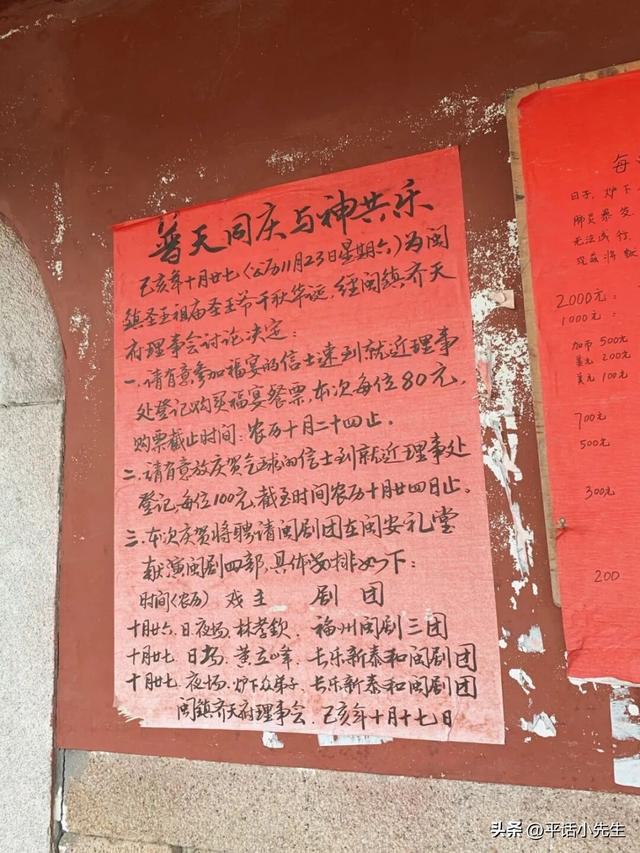 普天同庆与神共乐
己亥年十月廿七(公历11月23日星期六)为闽
镇圣王祖庙圣王爷千秋华诞，经闽镇齐天
府理事会讨论决定：
一.请有意参加福宴的信士速到就近理事
处登记购买福宴餐票，本次每位80元，
购票截止时间：农历十月二十四止。
二.请有意放庆贺气球的信士到就近理事处
登记，每位100元，截至时间农历十月廿四日止。
三.本次庆贺将聘请闽剧团在闽安礼堂
献演闽剧四部，具体安排如下：
时间(农历) 戏主 剧团
十月廿六.日.夜场.林孝钦. 福州闽剧三团
十月廿七. 日场. 黄立峰. 长乐新泰和闽剧团
十月廿七. 夜场. 炉下众弟子. 长乐新泰和闽剧团
闽镇齐天府理事会. 己亥年十月十七日
每
日子，炉下
2000元：
1000元：
加币 500元
美元 200元
美元 100元
700元
500元
300元
200
头条 @平话小先生